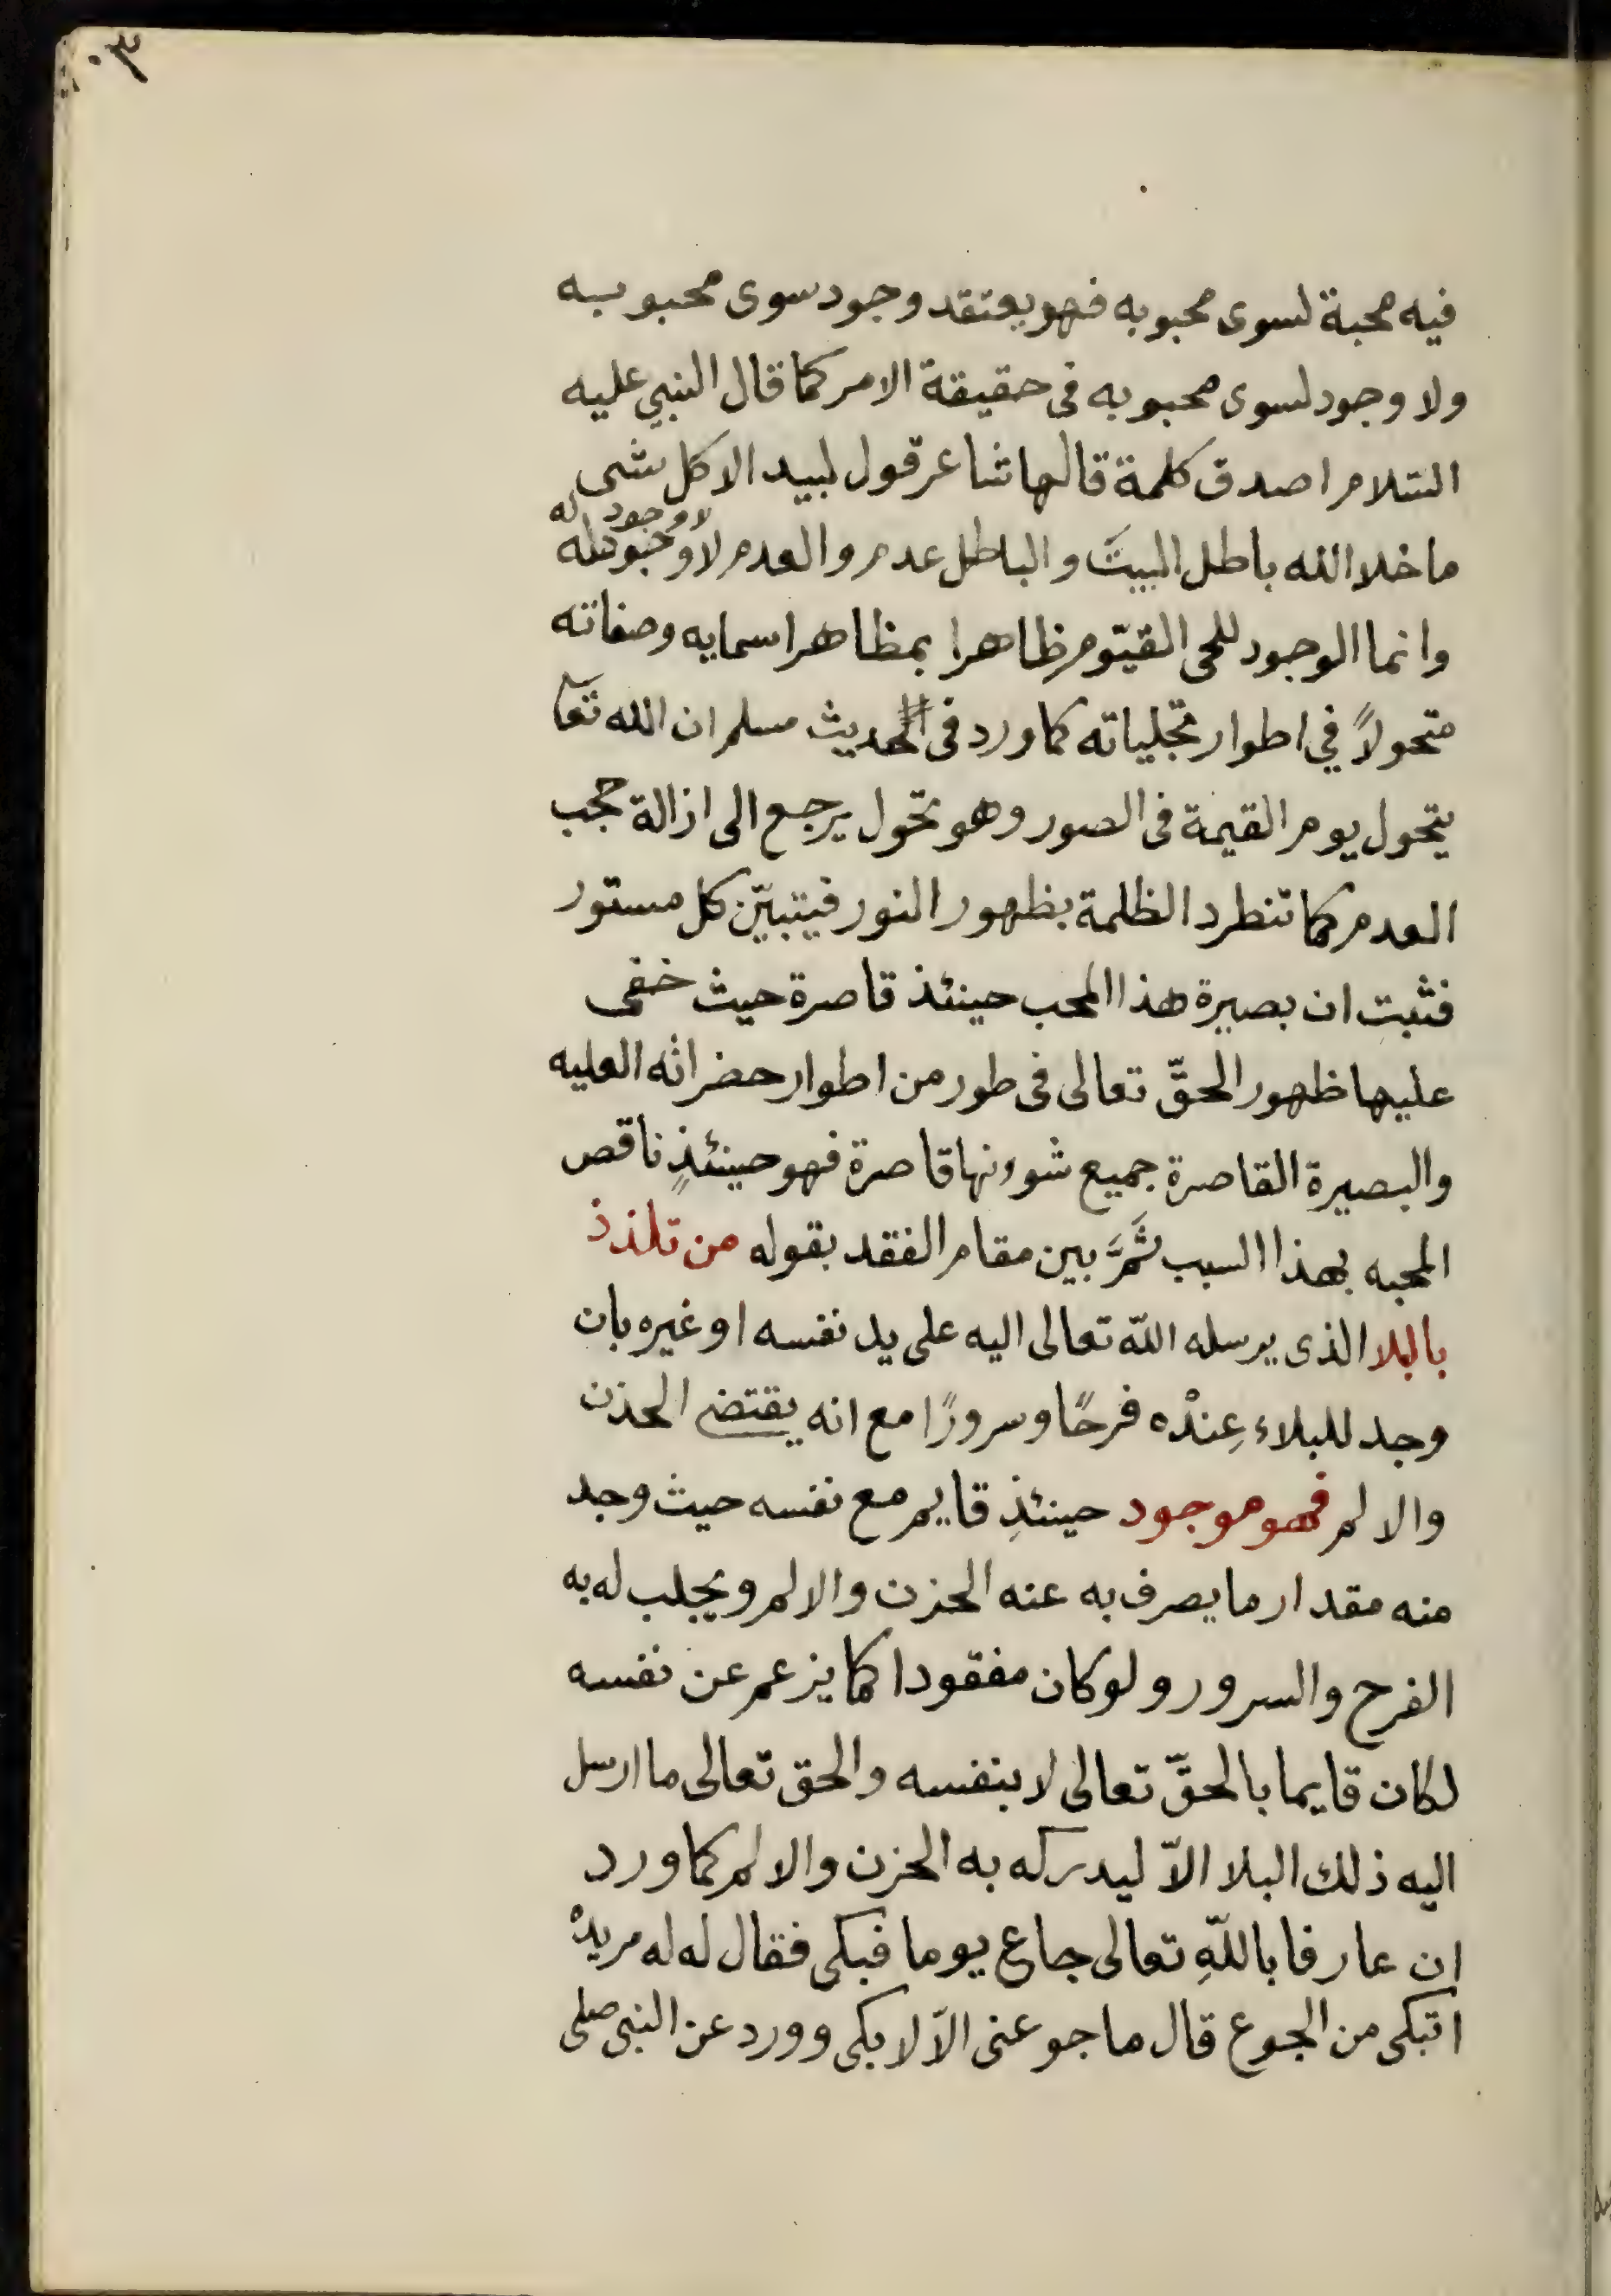 ٣٠
فيه محبة لسوى محبوبه فهو يعتقد وجود سوى محبوبه
ولا وجود لسوى محبوبه فى حقيقة الامر كما قال النبي عليه
السّلام اصدق كلمة قالها شاعر قول لبيد الا كل شى
لا وجود له
ما خلا الله باطل البيتَ والباطل عدم والعدم لا وجود له
وانما الوجود للحى القيّوم ظاهرا بمظاهر اسمايه وصفاته
متحولاً في اطوار تجلياته كما ورد فى الحديث مسلم ان الله تعا
يتحول يوم القيمة فى الصور وهو تحول يرجع الى ازالة حجب
العدم كما تنطرد الظلمة بظهور النور فيتبيّن كل مستور
فثبت ان بصيرة هذا المحب حينئذ قاصرة حيث خفى
عليها ظهور الحقّ تعالى فى طور من اطوار حضراته العليه
والبصيرة القاصرة جميع شوءنها قاصرة فهو حينئذٍ ناقص
المحبه بهذا السبب ثمَّ بين مقام الفقد بقوله من تلذذ
بالبلا الذى يرسله اللّه تعالى اليه على يد نفسه او غيره بان
وجد للبلاء عِنْده فرحًا وسرورًا مع انه يقتضى الحذن
والالم فهو موجود حينئذِ قايم مع نفسه حيث وجد
منه مقدار ما يصرف به عنه الحزن والالم ويجلب له به
الفرح والسرور ولو كان مفقودا كما يزعم عن نفسه
لكان قايما بالحقّ تعالى لا بنفسه والحق تعالى ما ارسل
اليه ذلك البلا الاّ ليدركه به الحزن والالم كما ورد
ان عارفا باللّهِ تعالى جاع يوما فبكى فقال له له مريدْ
اتبكى من الجوع قال ما جوعنى الاّ لابكى وورد عن النبى صلى